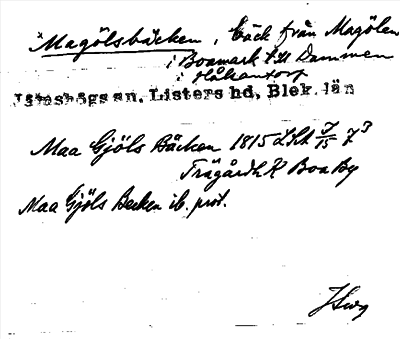 Magölsbäcken, bäck från Magölen
i Boamark till Dammen
i Håkantorp
Jämshögs sn. Listers hd, Blek. län
Maa Gjöls Bäcken 1815 LSA J/15 7³
Trägårdh K Boa By
Maa Gjöls Becken ib. prot.